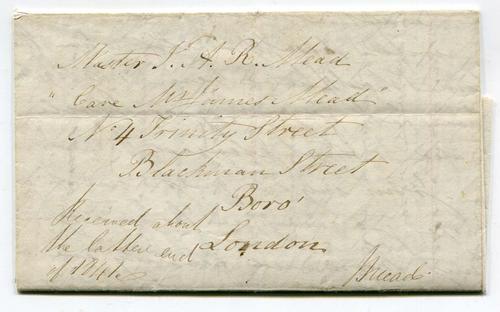 Master J. A. R. Mead
"Care Mr James Mead"
No 4 Trinity Street
Blackman Street
Boro'
London
Received about
the latter end
of 1841
JMead